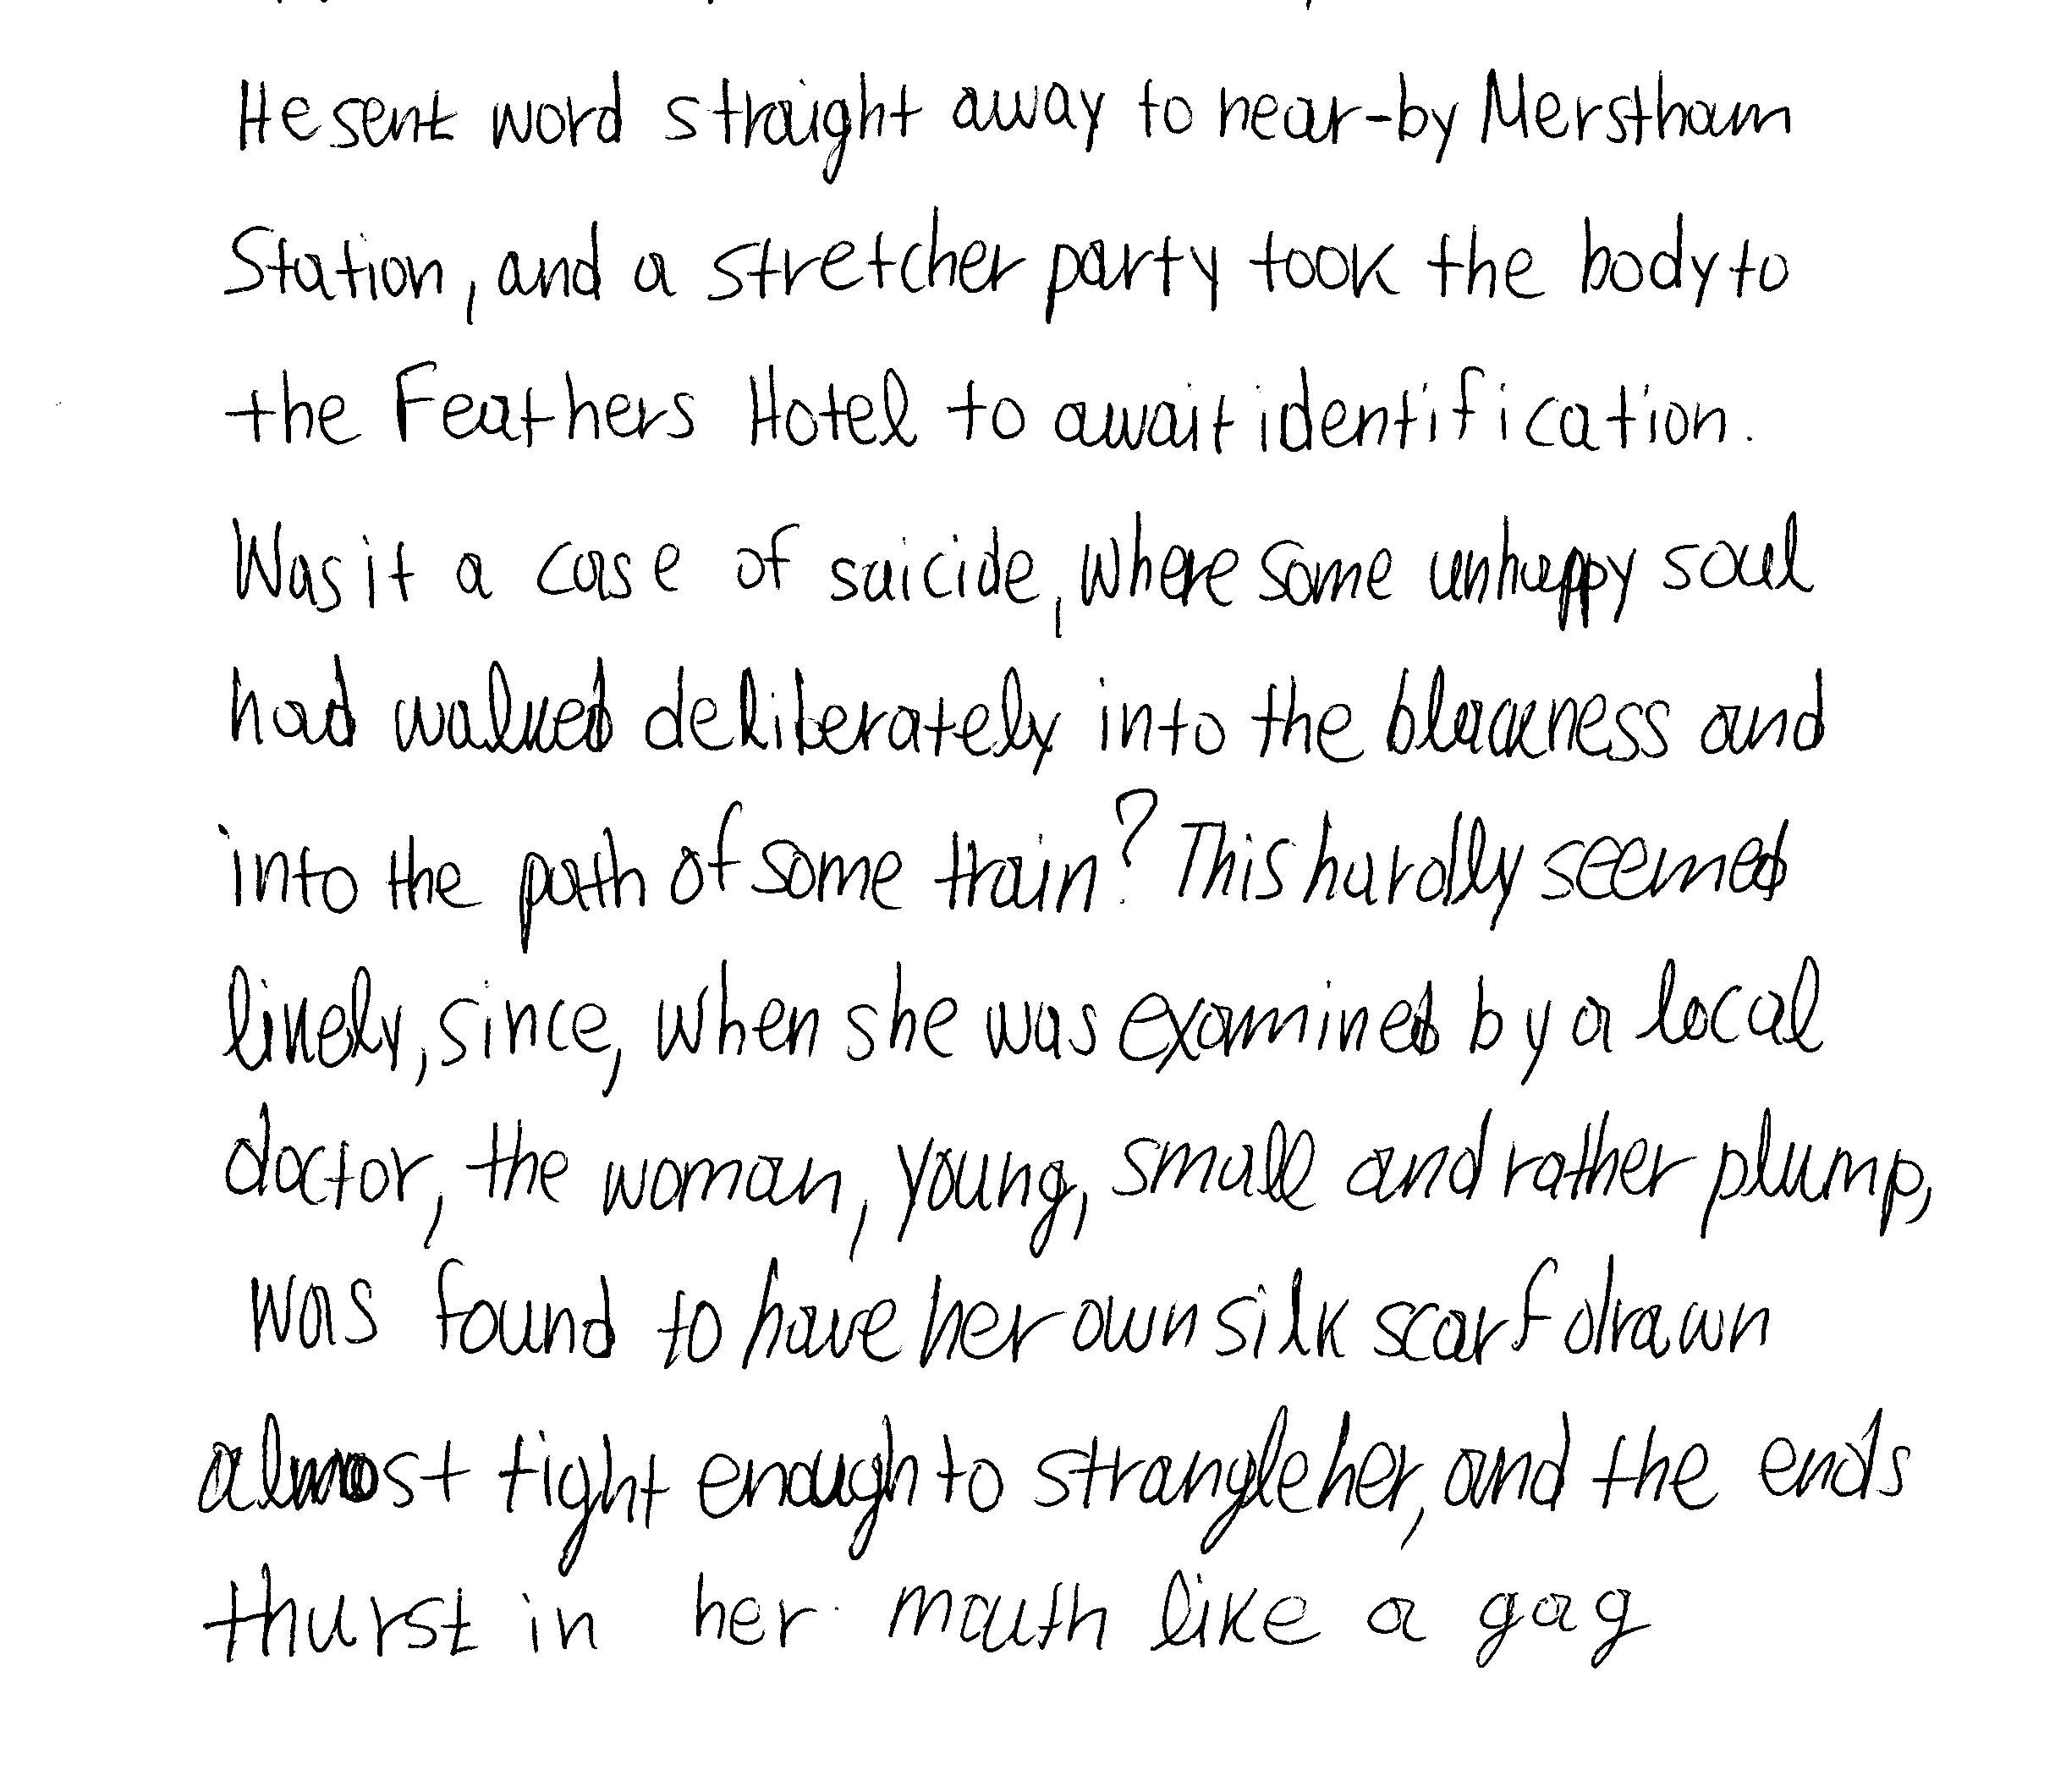 He sent word straight away to near-by Merstham
Station, and a stretcher party took the body to
the Feathers Hotel to await identification.
Was it a case of suicide, where some unhappy soul
had walked deliberately into the blackness and
into the path of some train? This hardly seemed
likely, since, when she was examined by a local
doctor, the woman, young, small and rather plump,
was found to have her own silk scarf drawn
almost tight enough to strangle her, and the ends
thurst in her mouth like a gag